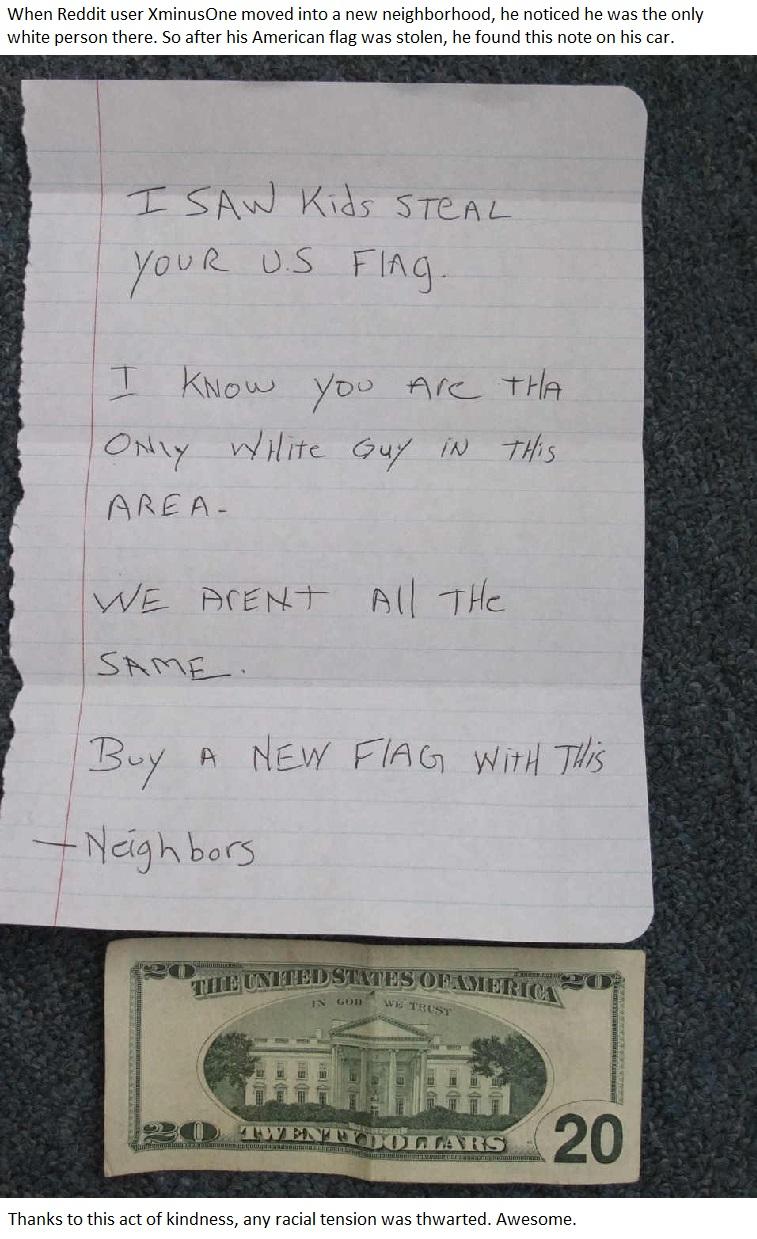 When Reddit user XminusOne moved into a new neighborhood, he noticed he was the only
white person there. So after his American flag was stolen, he found this note on his car.
I SAW Kids STEAL
YOUR U.S FlAg.
I KNOW you Are THA
ONly WHite Guy iN THis
AREA-
WE ArENt All THe
SAME.
Buy A NEW FlAG WitH THis
-Neighbors
20 20
THE UNITED STATES OF AMERICA
IN GOD WE TRUST
20 TWENTY DOLLARS 20
Thanks to this act of kindness, any racial tension was thwarted. Awesome.